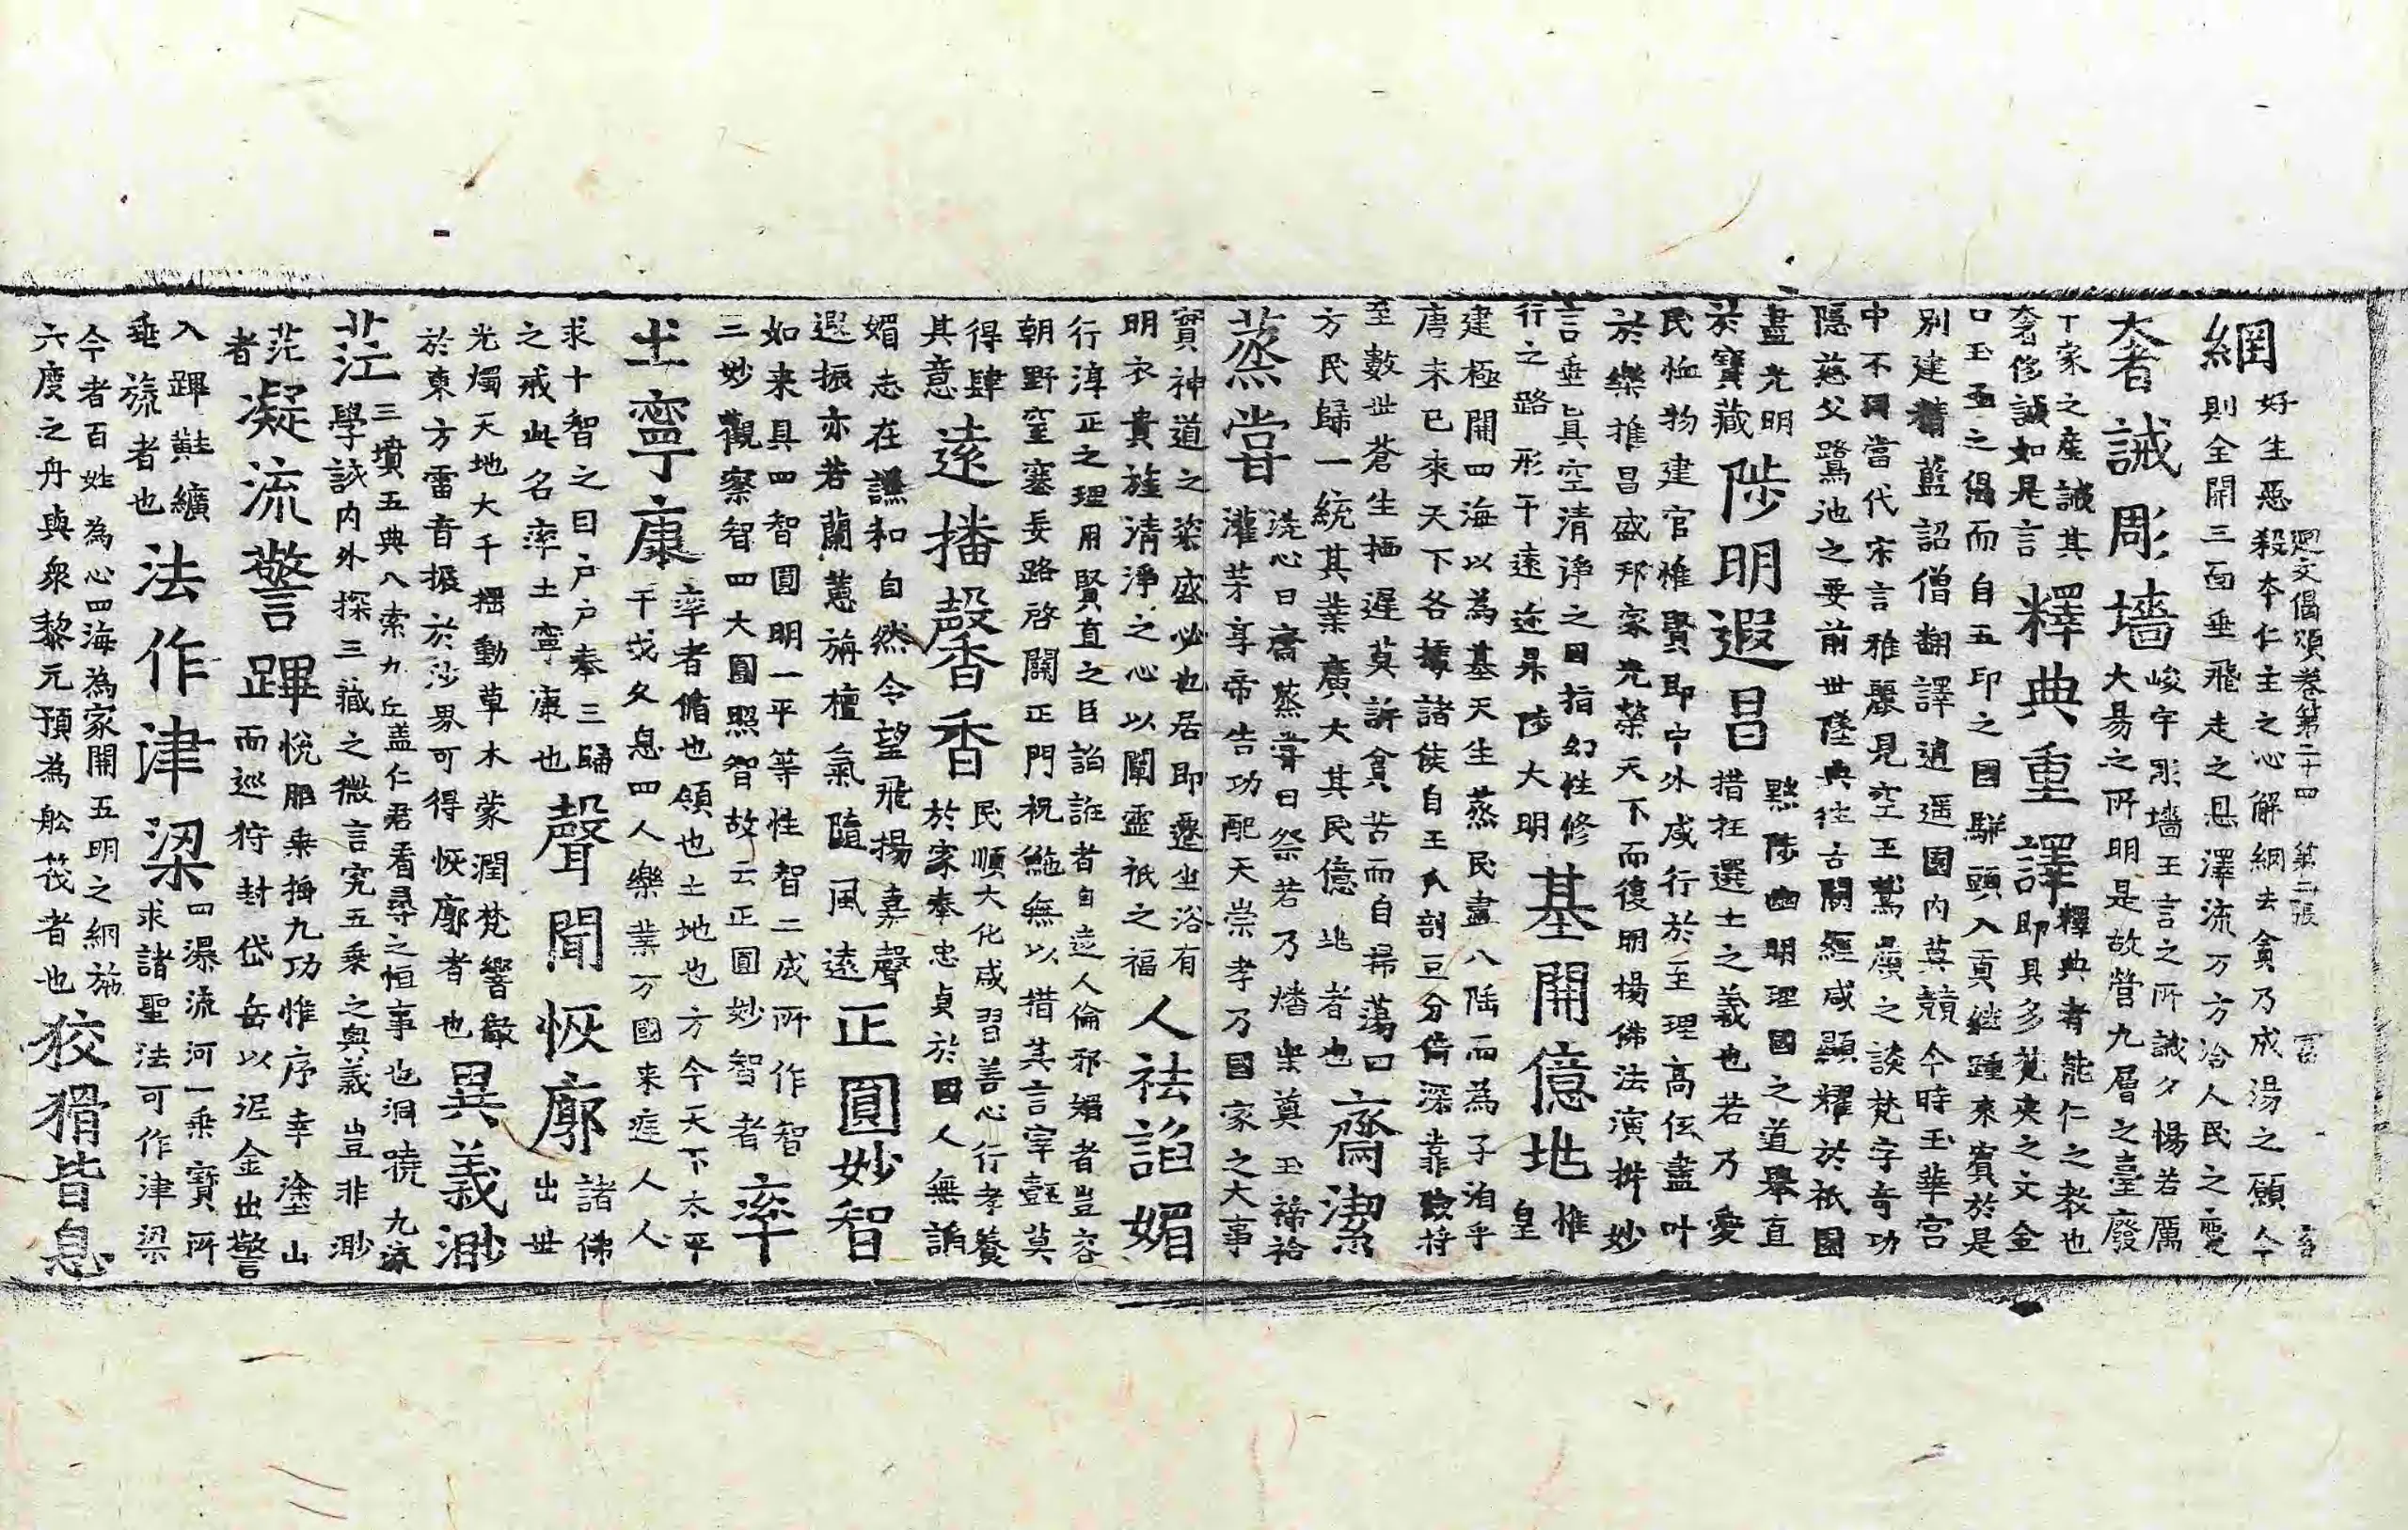 廻文偈頌卷第二十四 第二張
網 好生惡殺本仁主之心解網去貪乃成湯之願今
則全開三面垂飛走之恩澤流万方洽人民之慶
奢誡彫墻 峻宇彫墻王言之所誡夕惕若厲
大易之所明是故營九層之臺廢
丁家之產誡其
奢侈誠如是言 釋典重譯 釋典者能仁之教也
即具多梵夾之文金
口玉 之偈而自五印之國駢頭入貢継踵來賓於是
別建精藍詔僧翻譯逍遥園內莫競今時玉華宮
中不同當代宋言雅麗見空王鷲嶺之談梵字奇功
隱慈父鷺池之要前世墜典徃古闕經咸顯耀於祇園
盡光明
於寶藏 陟明遐昌 黜陟幽明理國之道舉直
措枉選士之義也若乃愛
民恤物建官惟賢即中外咸行於至理高低盡叶
於樂推昌盛邦家光榮天下而復明楊佛法演抍妙
言垂眞空清淨之因指幻性修
行之路形于遠迩杲陟大明 基開億地 惟
皇
建極開四海以為基天生蒸民盡八陲而為子洎乎
唐末已來天下各據諸侯自王瓜剖豆分倚深靠險將
至數世蒼生栖遲莫訴貪苦而自掃蕩曰
方民歸一統其業廣大其民億地者也 齋潔
蒸甞 洗心曰齋蒸甞曰祭若乃燔柴奠玉禘祫
灌茅享帝告功配天崇孝乃國家之大事
實神道之粢盛必也居即遷坐浴有
明衣貴旌清淨之心以闡靈祇之福 人祛謟媚
行淳正之理用賢直之臣謟誑者自遠人倫邪媚者豈容
朝野窒塞妄路啓闢正門祝鮀無以措其言宰嚭莫
得肆
其意 遠播馨香 民順大化咸習善心行孝養
於家奉忠貞於國人無謟
媚志在謙和自然令望飛揚嘉聲
遐振亦若蘭蕙旃檀氣隨風遠 正圓妙智
如來具四智圓明一平等性智二成所作智
三妙觀察智四大圓照智故云正圓妙智者 率
土寧康 率者循也領也土地也方今天下太平
干戈久息四人樂業万國來遑人人
求十智之因戶戶奉三歸
之戒此名率土寧康也 聲聞恢廓 諸佛
出世
光燭天地大千揺動草木蒙潤梵響徹
於東方雷音振於沙界可得恢廓者也 異義渺
茫 三墳五典八索九丘盖仁君看尋之恒事也洞曉九流
學該內外探三藏之微言究五乘之奧義豈非渺
茫
者 凝流警蹕 悅服乘梅九功惟序幸塗山
而巡狩封岱岳以泥金出警
入蹕黈纊
垂旒者也 法作津梁 四瀑流河一乘寶所
求諸聖法可作津梁
今者百姓為心四海為家開五明之網施
六度之舟與衆黎元預為舩筏者也 狡猾皆息